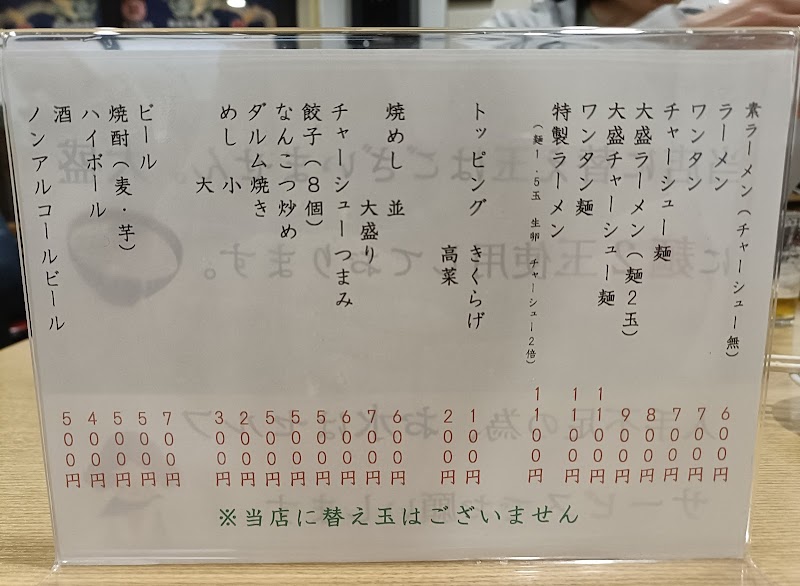 素ラーメン（チャーシュー無） 600円
ラーメン 700円
ワンタン 700円
チャーシュー麺 800円
大盛ラーメン（麺2玉） 900円
大盛チャーシュー麺 1100円
ワンタン麺 1100円
特製ラーメン 1100円
（麺1.5玉 生卵 チャーシュー2倍）
トッピング きくらげ 100円
高菜 200円
焼めし 並 600円
大盛り 700円
チャーシューつまみ 600円
餃子（8個） 500円
なんこつ炒め 500円
ダルム焼き 500円
めし 小 200円
大 300円
ビール 700円
焼酎（麦・芋） 500円
ハイボール 500円
酒 400円
ノンアルコールビール 500円
※当店に替え玉はございません